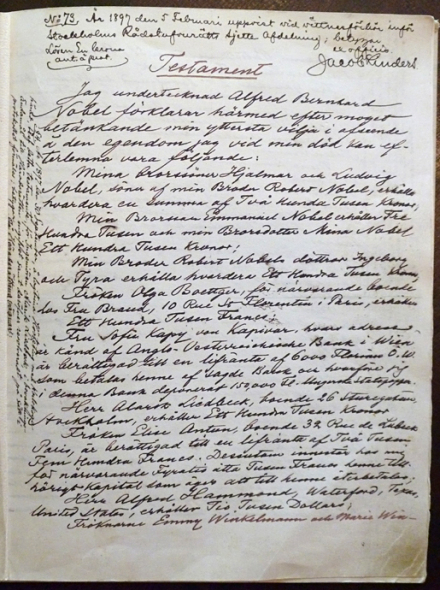 No 73. År 1897 den 5 Februari uppvist vid vittnesförhör inför
Stockholms Rådstufvurätts sjette Afdelning; betygar
Lösen En krona
ex officio
Jacob Lindert
Testament
Jag undertecknad Alfred Bernhard
Nobel förklarar härmed efter moget
betänkande min yttersta vilja i afseende
å den egendom jag vid min död kan ef-
terlemna vara följande:
Mina Brorsöner Hjalmar och Ludvig
Nobel, söner af min Broder Robert Nobel, erhålla
hvardera en summa af Två Hundra Tusen Kronor;
Min Brorson Emmanuel Nobel erhåller Tre
Hundra Tusen och min Brorsdotter Mina Nobel
Ett Hundra Tusen Kronor;
Min Broder Robert Nobels döttrar Ingeborg
och Tyra erhålla hvardera Ett Hundra Tusen Kronor
Fröken Olga Boettger, för närvarande boende
hos Fru Brand, 10 Rue St Florentin i Paris, erhåller
Ett Hundra Tusen Francs;
Fru Sofie Kapy von Kapivar, hvars adress
är känd af Anglo-Oesterreichische Bank i Wien
är berättigad till en lifränta af 6000 Florins Ö.W.
som betalas henne af sagde Bank och hvarför jag
i denna Bank deponerat 150,000 Fl. i Ungerska Statspapper
Herr Alarik Liedbeck, boende 26 Sturegatan,
Stockholm, erhåller Ett Hundra Tusen Kronor
Fröken Elise Antun, boende 32 Rue de Lubeck
Paris, är berättigad till en lifränta af Två Tusen
Fem Hundra Francs. Dessutom innestår hos mig
för närvarande Fyratio åtta Tusen Francs henne till-
hörigt kapital som äger att till henne återbetalas;
Herr Alfred Hammond, Waterford, Texas,
United States, erhåller Tio Tusen Dollars;
Fröknarne Emmy Winkelmann och Marie Win-